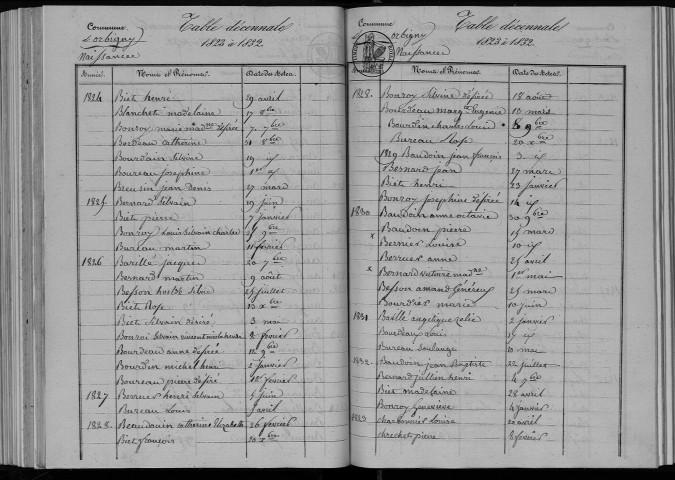 Commune
d'orbigny
Naissances
Table décennale
1823 à 1832.
Années. Noms et Prénoms. Date des Actes.
1824 Biet henri 29 avril
Blanchet madelaine 17 8bre
Bonroy marie madne désirée 7. 7bre
Bordeau catherine 31 8bre
Bourdain Silvine 19 id
Boureau josephine 1er
Beusin jean Denis 27 mars
1825 Bernard Silvain 29 juin
Biet pierre 7 janvier
Bonroy Louis Silvain charles 9bre
Bureau martin 11 février
1826 Barillé jacques 20 7bre
Bernard martin 9 août
Besson 25 juillet
Biet Rose 13 xbre
Biet Silvain désiré 3 mai
Bonroi Silvain vincent 2 février
Bourdeau anne désirée 12 9bre
Bourdin michel henri 2 janvier
Boureau pierre désiré février
1827 Berruer henri Silvain 4 juin
Bureau Louis avril
1828. Beaudouin catherine Elizabeth 26 février
Biet françois 20 xbre
Commune
d'orbigny
Naissances
Table décennale
1823 à 1832.
Noms et Prénoms. Date des Actes.
1828. Bonroy Silvine désirée 18 août
Bourdeau Eugenie 10 mars
Bourdin charles Louis 8 9bre
Bureau Rose 20 xbre
1829 Baudoin jean françois 3 id
Bernard jean 27 mars
Biet henri 23 janvier
Bonroy josephine désirée 14 id
1830 Baudoin anne octavie 30 9bre
Baudoin pierre 15 mars
x Bernier Louise 10 id
Berruer anne 25 avril
x Bernard madne 1er mai
Besson amand 25 mars
Bourdier marie 10 juin
1831 Batillé angélique zélie 2 janvier
Bourdeau Louis id
Bureau Solange 10 mai
1832. Baudoin jean Baptiste 22 juillet
Bernard jullien henri 4 9bre
Biet madelaine 28 avril
Bonroy Geneviève 4 janvier
1823 charbonnier Louise 20 avril
chrechet pierre 8 février